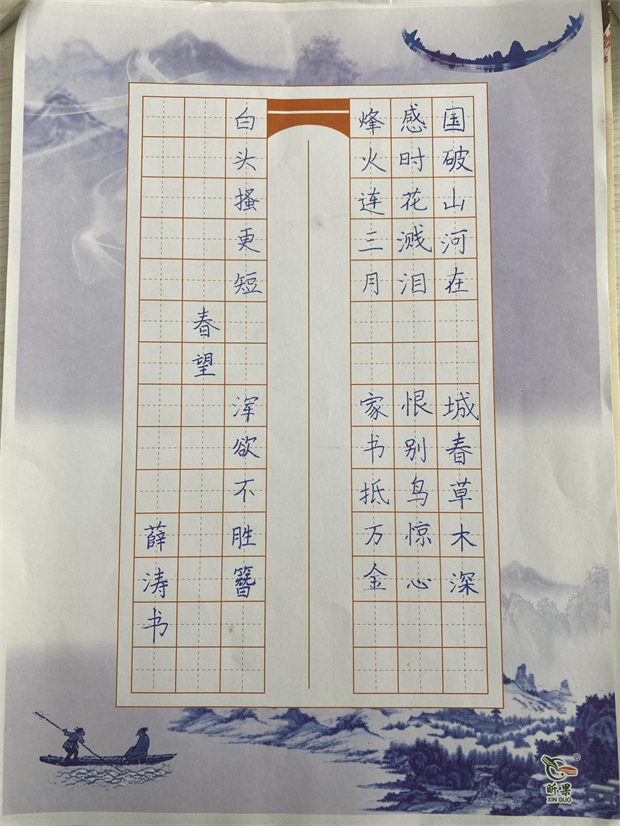 国破山河在 城春草木深
感时花溅泪 恨别鸟惊心
烽火连三月 家书抵万金
白头搔更短 浑欲不胜簪
春望
薛涛书
昕果
XIN GUO